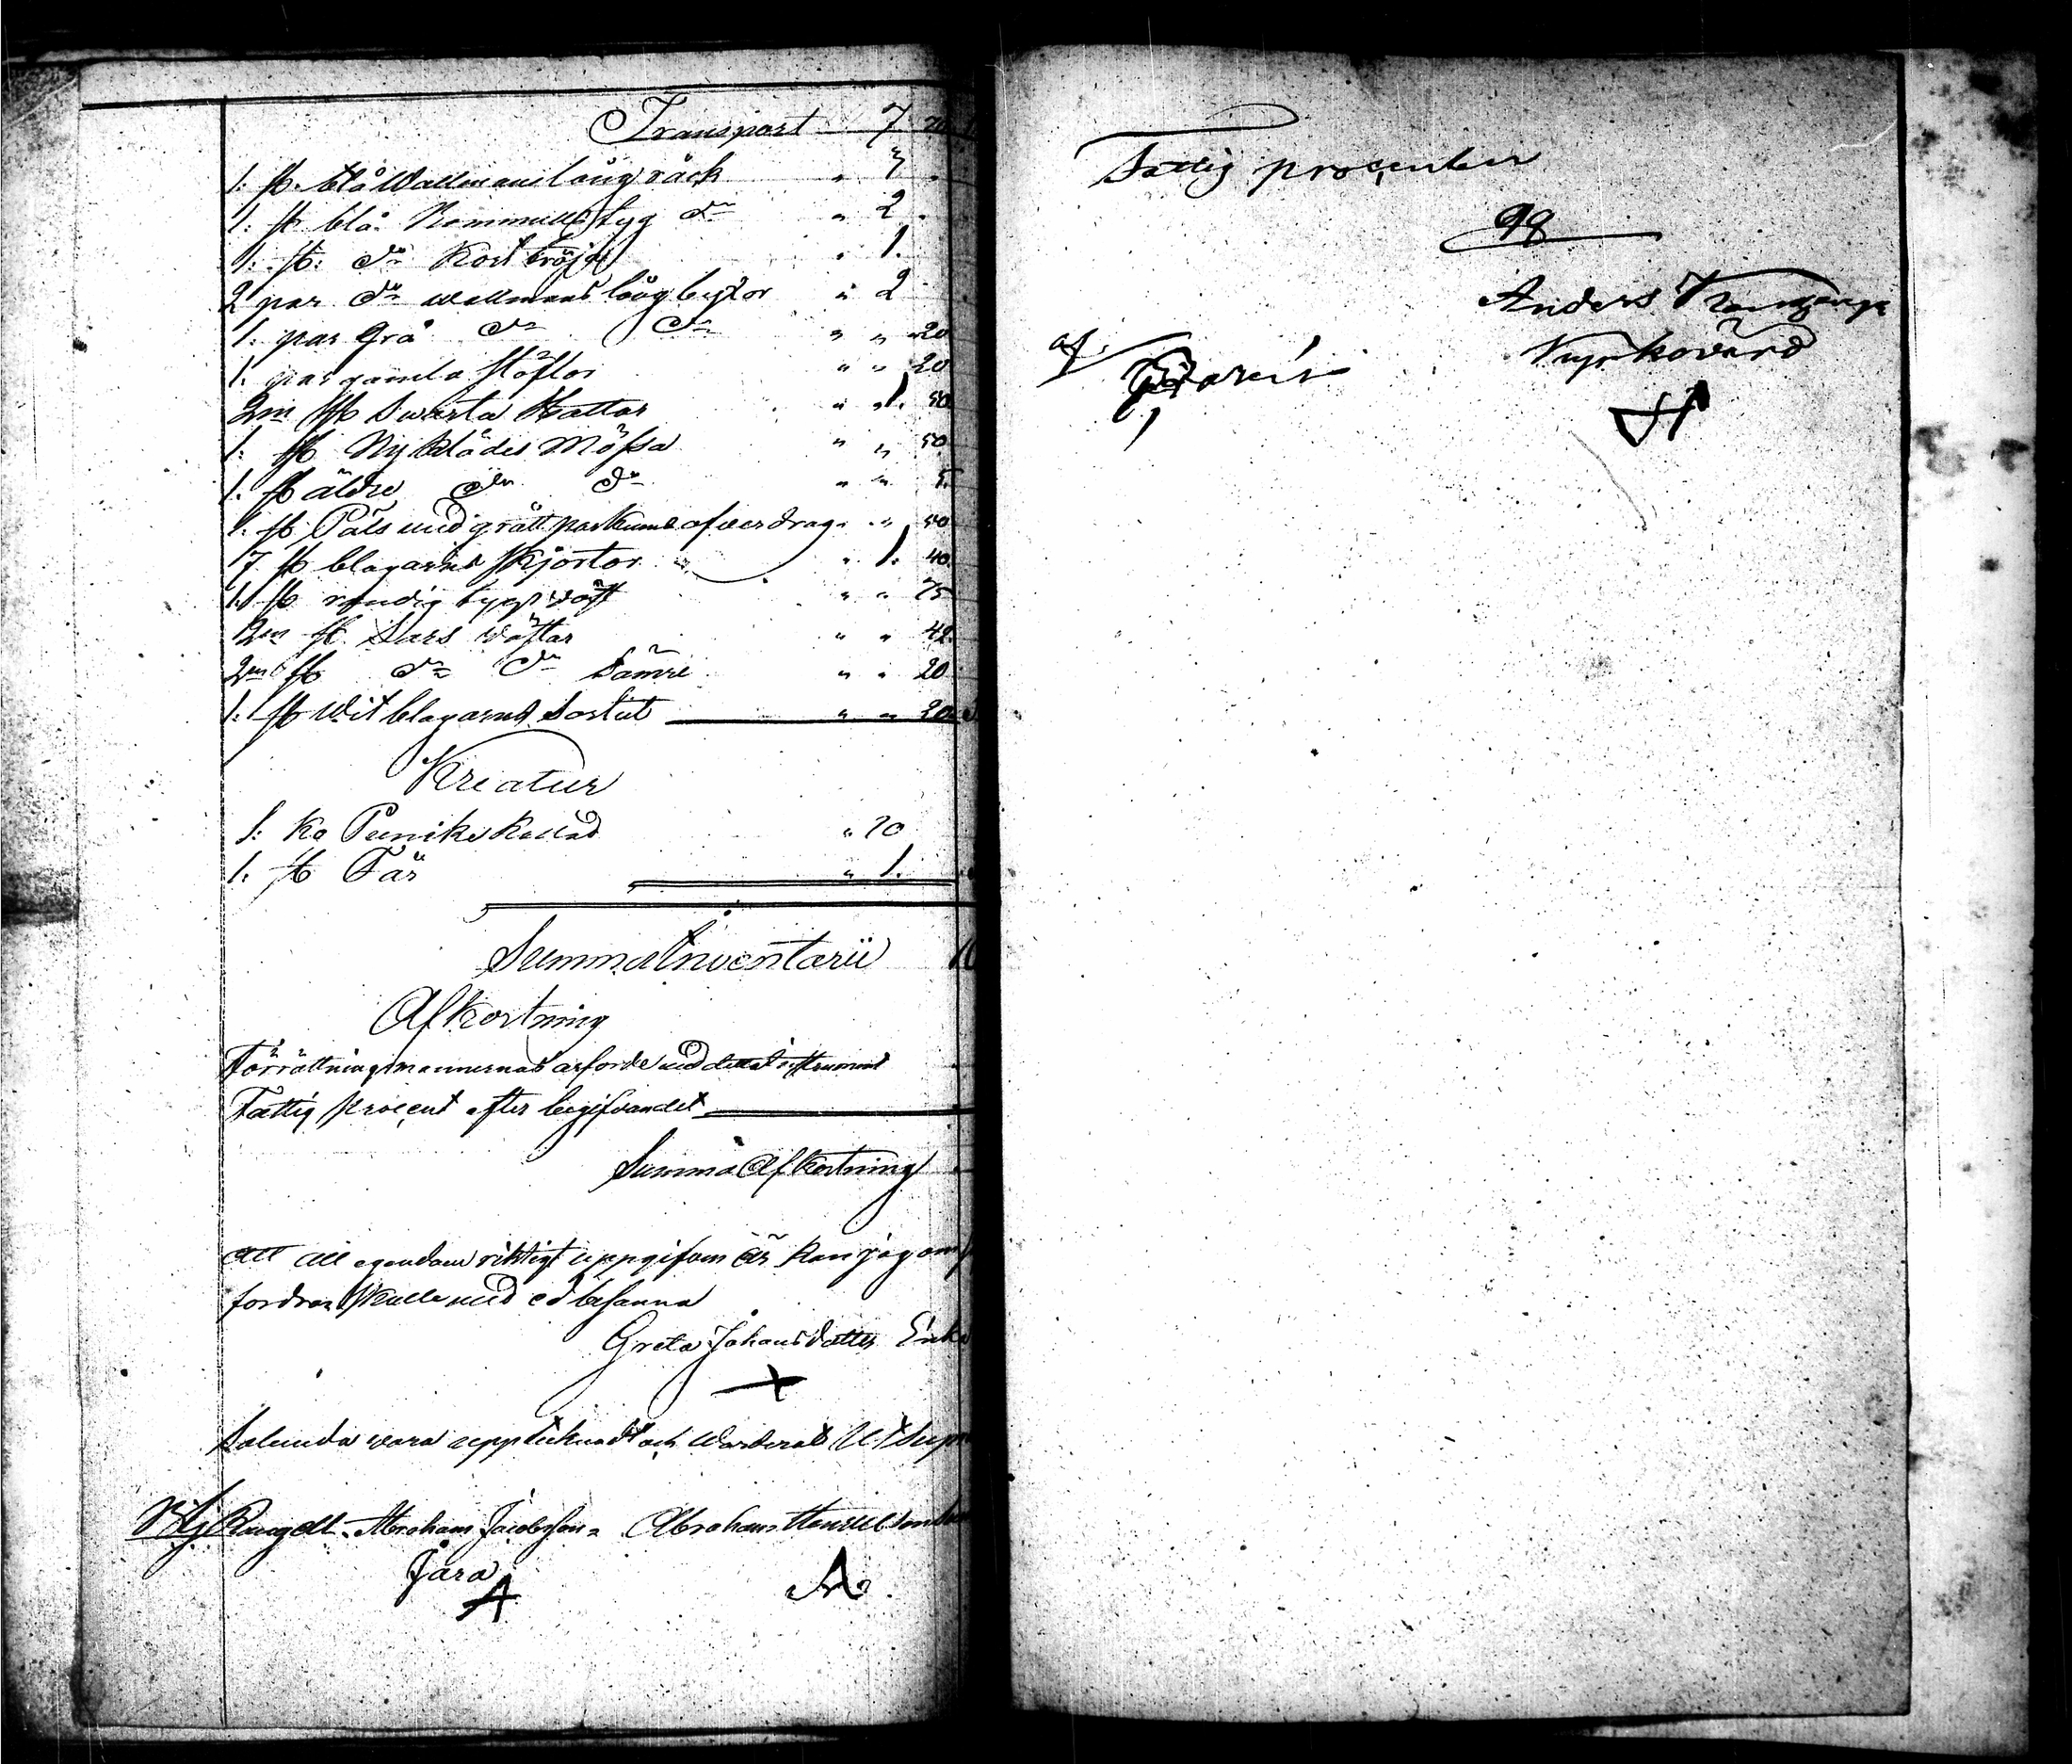 Transport 7 20
1: st. blå Wallmans lång råck " 3 "
1: st blå Bommulls tyg do " 2 "
1: st: do Kort tröja " 1.
2 par do wallmans lång byxor " 2
1: par Grå do do " " 20
1: par gamla stöflor " " 20
2ne st Swarta Hattar " 1. 50
1: st Ny Klädes Mössa " " 50
1: st äldre do do " " 5
1: st Päls med grått parkums öfverdrag " " 50
7 st blagarns skjortor " 1. 40
1: st randig tygs väst " " 75
2ne st. Sars västar " " 42
2ne st do do Sämre " " 20
1: st Wit blagarns Sortut " " 20
Kreatur
1: Ko Punike kallad " 20
1: st Får " 1.
Summa Inventarii
Afkortning
Förrättningsmannernas arfvode med detta instrument
Fattig procent efter lagifvandet
Summa Afkortning
Att all egendom riktigt uppgifven är kan jag om
fordras skulle med ed besanna
Greta Johansdotter Enka
Salunda vara uppteknadt och Warderat Ut Supra
Abraham Jacobsson Abraham
Jara
A A
Fattig procenter
98
Anders
af. Kyrkovärd